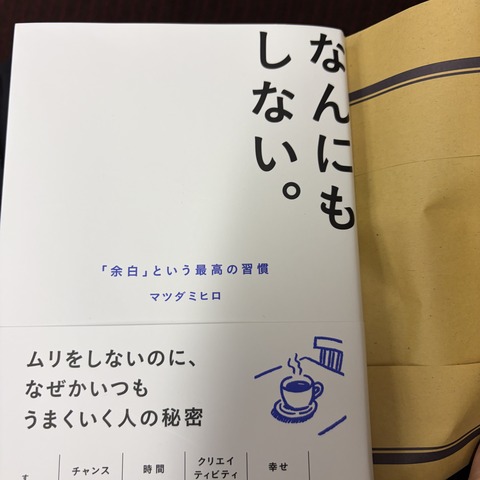 なんにも
しない。
「余白」という最高の習慣
マツダミヒロ
ムリをしないのに、
なぜかいつも
うまくいく人の秘密
チャンス
時間
クリエイ
ティビティ
幸せ